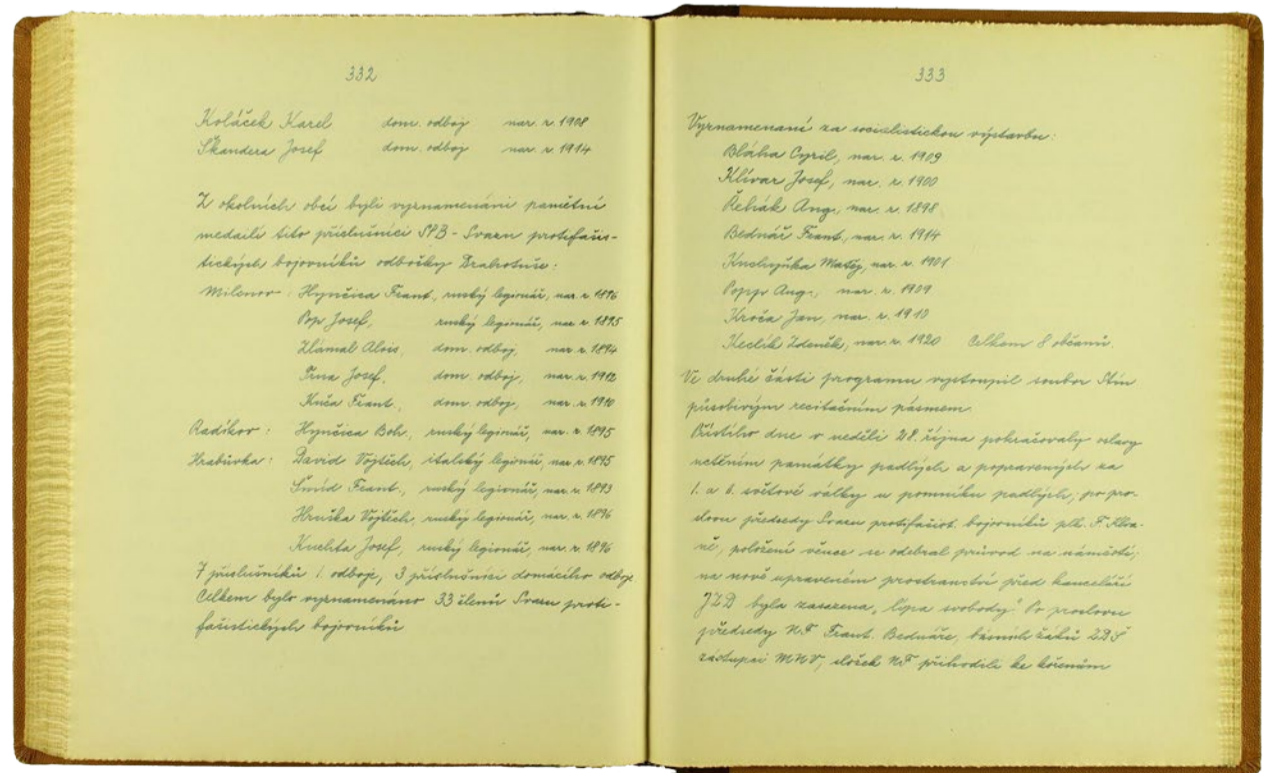 332
Koláček Karel dom. odboj nar. r. 1908
Škandera Josef dom. odboj nar. r. 1914
Z okolních obcí byli vyznamenáni pamětní
medailí tito příslušníci SPB - Svazu protifašis-
tických bojovníků odbočky Drahotuše:
Milenov: Hynčica Frant., ruský legionář, nar. r. 1896
Pop Josef, ruský legionář, nar. r. 1895
Zlámal Alois, dom. odboj, nar. r. 1894
Trna Josef, dom. odboj, nar. r. 1912
Kuča Frant., dom. odboj, nar. r. 1910
Radíkov: Hynčica Boh., ruský legionář, nar. r. 1895
Hrabůvka: David Vojtěch, italský legionář, nar. r. 1895
Šmíd Frant., ruský legionář, nar. r. 1893
Hruška Vojtěch, ruský legionář, nar. r. 1896
Kuchta Josef, ruský legionář, nar. r. 1896
7 příslušníků 1. odboje, 3 příslušníci domácího odboje
Celkem bylo vyznamenáno 33 členů Svazu proti-
fašistických bojovníků
333
Vyznamenaní za socialistickou výstavbu:
Bláha Cyril, nar. r. 1909
Klívar Josef, nar. r. 1900
Řehák Aug., nar. r. 1898
Bednář Frant., nar. r. 1914
Matěj, nar. r. 1901
Popp Aug., nar. r. 1909
Kroča Jan, nar. r. 1910
Keclík Zdeněk, nar. r. 1920 Celkem 8 občanů.
Ve druhé části programu vystoupil soubor Stín
působivým recitačním pásmem.
Příštího dne v neděli 28. října pokračovaly oslavy
uctěním památky padlých a popravených za
1. a 2. světové války u pomníku padlých; po pro-
slovu předsedy Svazu protifašist. bojovníků plk. F. Klva-
ně, položení věnce se odebral průvod na náměstí;
na nově upraveném prostranství před kanceláří
JZD byla zasazena "lípa svobody". Po proslovu
předsedy NF Frant. Bednáře, básních žáků ZDŠ
zástupci MNV, složek NF přihodili ke kořenům